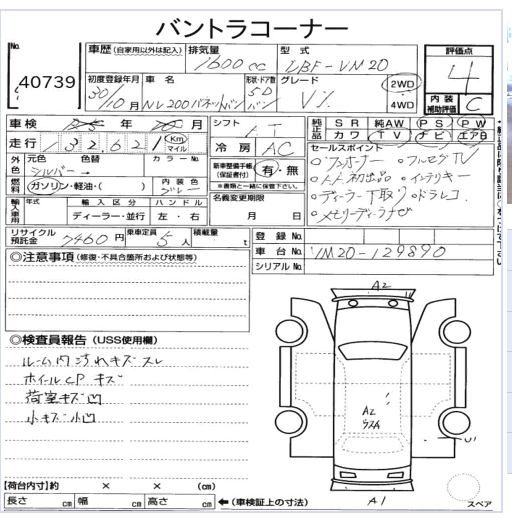 バントラコーナー
No. 40739
車歴 (自家用以外は記入) 排気量 1600 cc 型式 LBF-VM20
初度登録年月 30/10月 車名 NV200バネットバン 形状・ドア数 5D バン グレード 2WD 4WD
評価点 4
内装補助評価 C
車検 年 月 シフト AT
走行 132,621 Km マイル 冷房 AC
純正品 SR 純AW PS PW
カワ TV ナビ エアB
外色 元色 シルバー 色替 カラーNo. 新車整備手帳 (保証書付) 有・無
燃料 ガソリン・軽油・( ) 内装色 グレー ※書類と一緒に保管下さい。
輸入車用 年式 輸入区分 ハンドル 名義変更期限
ディーラー・並行 左・右 月 日
セールスポイント
○ワンオーナー ○フルセグTV
○AA初出品 ○インテリキー
○ディーラー下取り ○ドラレコ
○メモリディーラナビ
リサイクル預託金 7460円 乗車定員 5人 積載量 t
登録No.
車台No. VM20-129890
シリアルNo.
◎注意事項 (修復・不具合箇所および状態等)
◎検査員報告 (USS使用欄)
ルーム内汚れキズスレ
ホイールCPキズ
荷室キズ凹
小キズ小凹
A2
A2
A1
スペア
【荷台内寸】約 × × (cm)
長さ cm 幅 cm 高さ cm ←(車検証上の寸法)